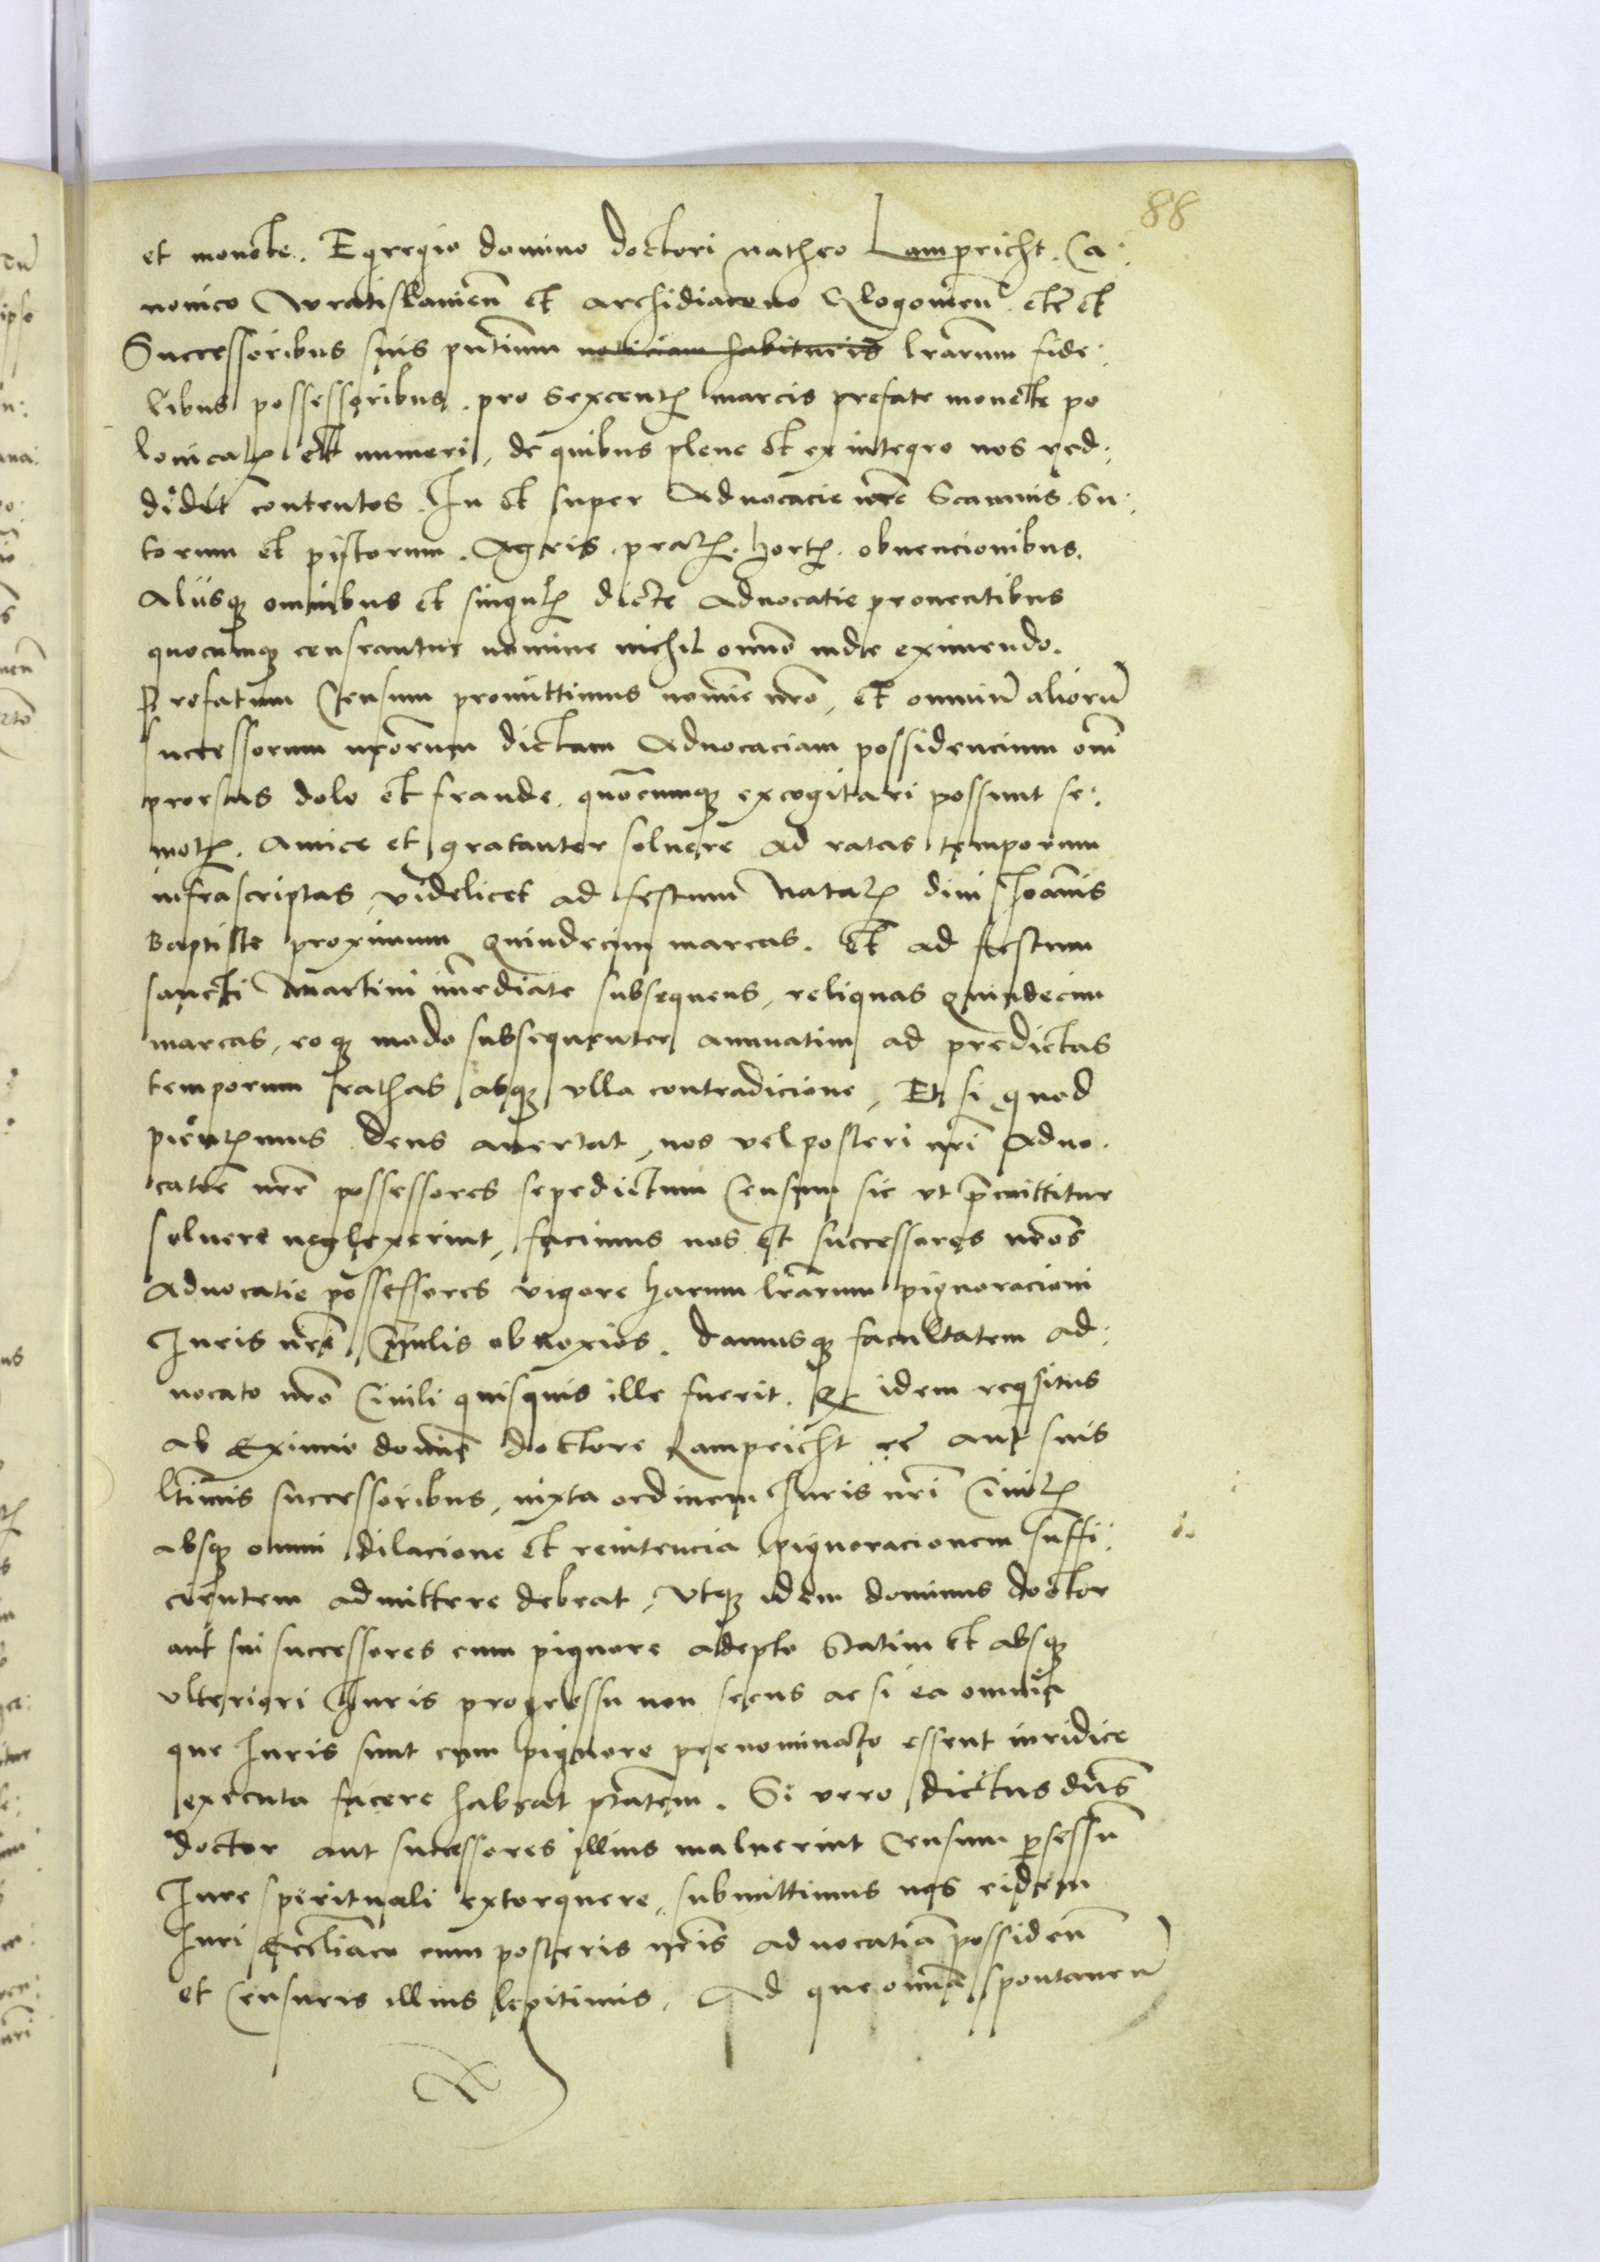 88
et monete. Egregio domino doctori Matheo Lampricht. Ca:
nonico Wratislauien̄ et archidiacono Glogouien̄ etc̄ et
Successoribus suis pn̄tium noticiam habituris lr̄arum fide:
libus possessoribus. pro sexcentꝭ marcis prefate monete po
lonicalꝭ et numeri, de quibus plene et ex integro nos red:
didit contentos. In et super Aduocacie nr̄e Scamnis Su:
torum et pistorum. Agris. pratꝭ. hortꝭ. obuencionibus.
Alijsqꝫ omnibus et singulꝭ dicte aduocatie prouentibus
quocumqꝫ censeantur nomine nichil omn̄o inde eximendo.
Prefatum Censum promittimus nomīe nr̄o, et omniū aliorū
successorum nr̄orum dictam Aduocaciam possidencium om̄i
prorsus dolo et fraude. quōcumqꝫ excogitari possunt se:
motꝭ. Amice et gratanter soluere ad ratas temporum
infrascriptas, videlicet ad festum Natalꝭ diui Ioānis
Baptiste proximum quindecim marcas. Et ad festum
sancti Martini īmediate subsequens, reliquas quindecim
marcas, eoqꝫ modo subsequenter annuatim ad predictas
temporum rathas absqꝫ vlla contradicione, Et si quod
pientꝭimus deus auertat, nos vel posteri nr̄i Aduo:
catie nr̄e possessores sepedictum Censum sic vt p̄mittitur
soluere neglexerint, facimus nos et successores nr̄os
Aduocatie possessores vigore harum lr̄arum pignoracioni
Iuris nr̄i Ciuilis obnoxios. damusqꝫ facultatem ad:
uocato nr̄o Ciuili quisquis ille fuerit. Qꝫ idem reqͥsitus
ab Eximio domīo doctore Lampricht etc̄ aut suis
ltīmis successoribus, iuxta ordinem Iuris nr̄i Ciuilꝭ
absqꝫ omni dilacione et renitencia pignoracionem suffi:
cientem admittere debeat, Vtqꝫ idem dominus doctor
aut sui successores cum pignore adepto Statim et absqꝫ
vlteriori Iuris progressu non secus ac si ea omnia
que Iuris sunt cum pignore prenominato essent iuridice
executa facere habeat ptātem. Si vero dictus dn̄s
doctor aut successores illius maluerint Censum ꝑsessū
Iure spirituali extorquere, submittimus nos eidem
Iuri Eccl̄iastico cum posteris nr̄is aduocatiā possiden̄
et Censuris illius legitimis. Ad que omīa spontaneū